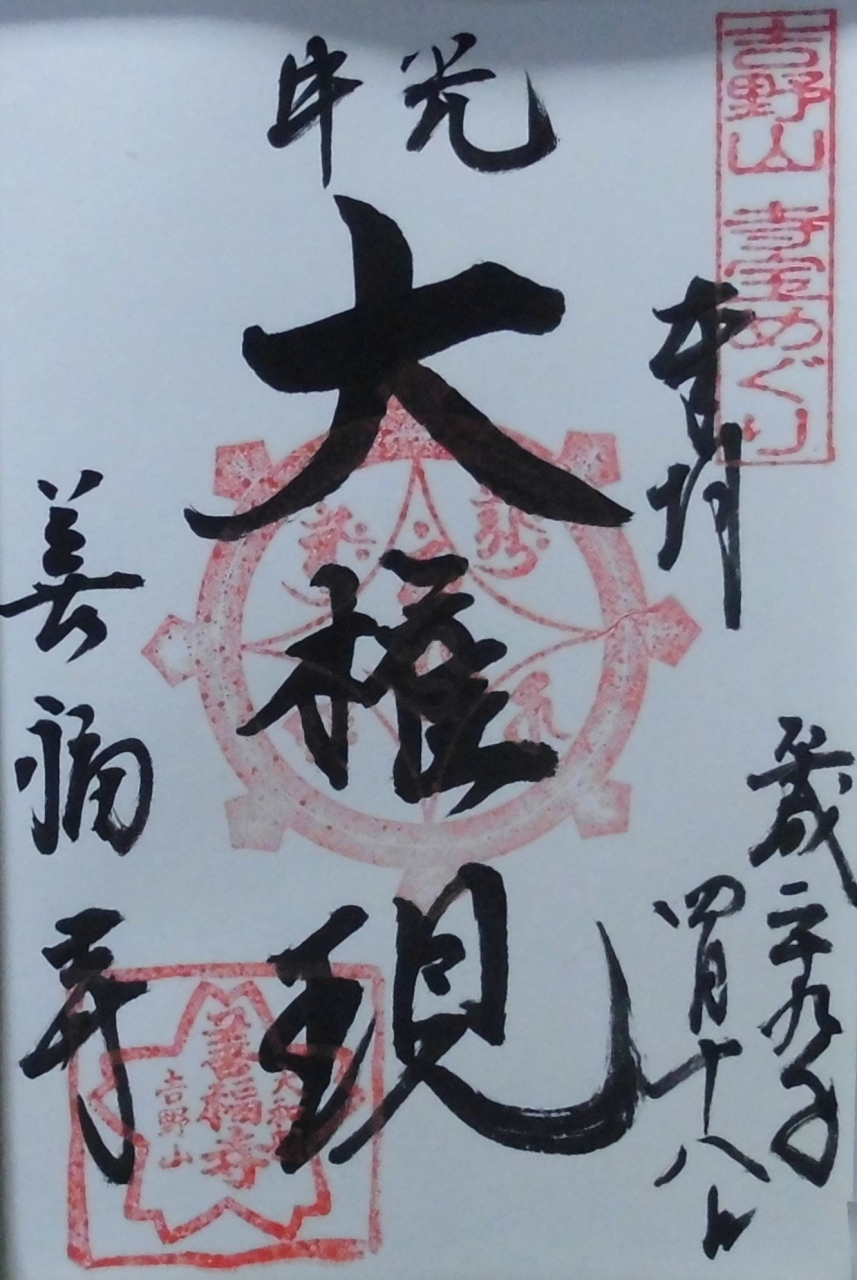 吉野山 寺宝めぐり
奉拝
歳二十九年
四月十八日
大権現
善福寺
善福寺
吉野山